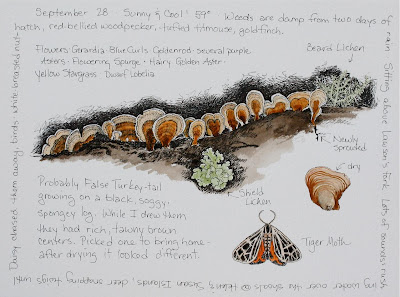 September 28 Sunny & Cool! 59° Woods are damp from two days of
rain Sitting above Lawson's fork. Lots of sounds: rush
ing water over the shoals @ Heron's Susan Islands, deer snapping twigs until
Daisy chased them away, birds - white breasted nut-
hatch, red-bellied woodpecker, tufted titmouse, goldfinch.
Flowers: Gerardia · Blue Curls · Goldenrod · several purple
Asters · Flowering Spurge · Hairy Golden Aster ·
Yellow Stargrass · Dwarf Lobelia
Beard Lichen
Newly
Sprouted
dry
Shield
Lichen
Probably False Turkey-tail
growing on a black, soggy,
spongey log. While I drew them
they had rich, tawny brown
centers. Picked one to bring home -
after drying it looked different.
Tiger Moth